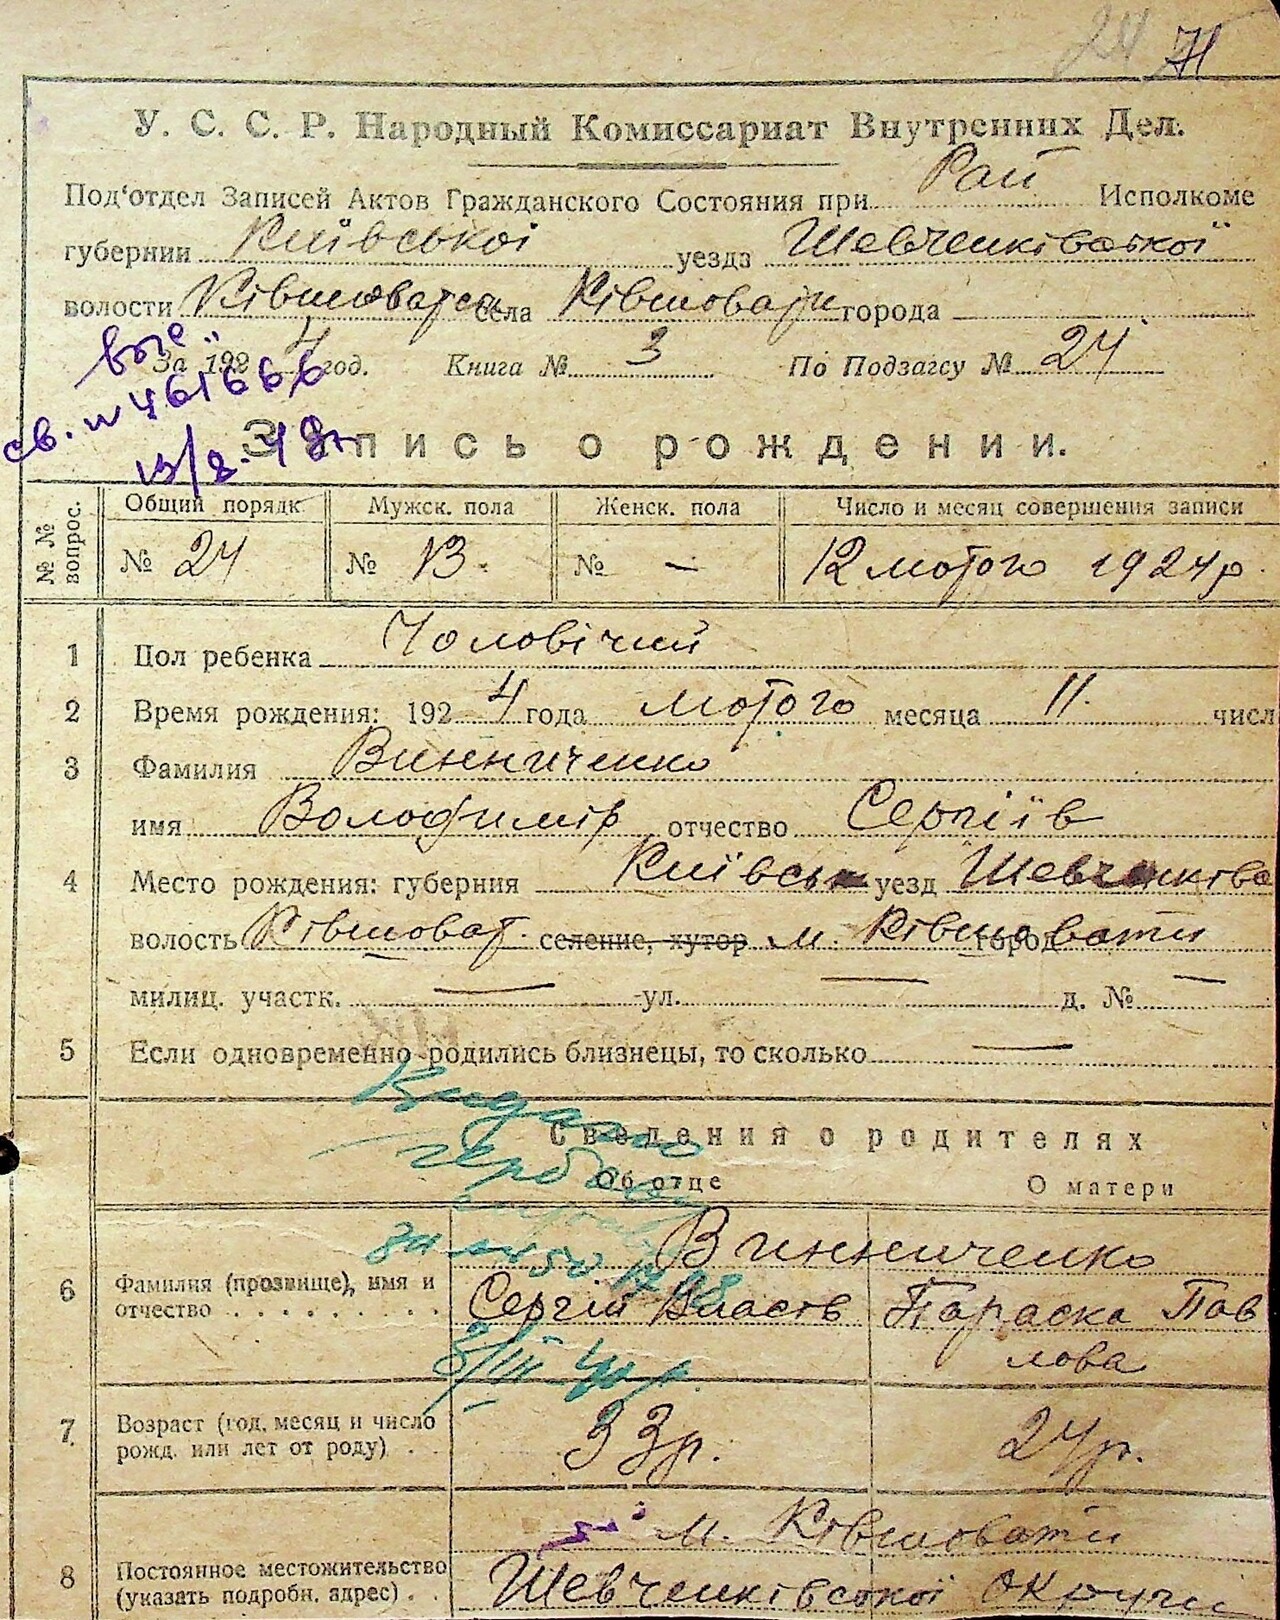 24
У. С. С. Р. Народный Комиссариат Внутренних Дел.
Под‘отдел Записей Актов Гражданского Состояния при Рай Исполкоме
губернии Київської уезда Шевченківської
волости Ківшоватсь села Ківшовати города
За 1924 год. Книга № 3 По Подзагсу № 24
св. № 461666
13/8. 48г
Запись о рождении.
№ № вопрос. Общий порядк. Мужск. пола Женск. пола Число и месяц совершения записи
№ 24 № 13. № — 12 мотого 1924 р.
1 Пол ребенка Чоловічий
2 Время рождения: 1924 года мотого месяца 11. числ
3 Фамилия Винниченко
имя Володимір отчество Сергіїв
4 Место рождения: губерния Київськ уезд Шевченківс
волость Ківшоват. селение, хутор м. город Ківшовати
милиц. участк. — ул. — д. № —
5 Если одновременно родились близнецы, то сколько —
Видано
Сведения о родителях
Об отце О матери
за №
Винниченко
6 Фамилия (прозвище), имя и отчество Сергій Власів Параска Пав
лова
3/III 40 р.
7 Возраст (год, месяц и число рожд. или лет от роду) 33 р. 24 р.
м. Ківшовати
8 Постоянное местожительство (указать подробн. адрес) Шевченківської округи